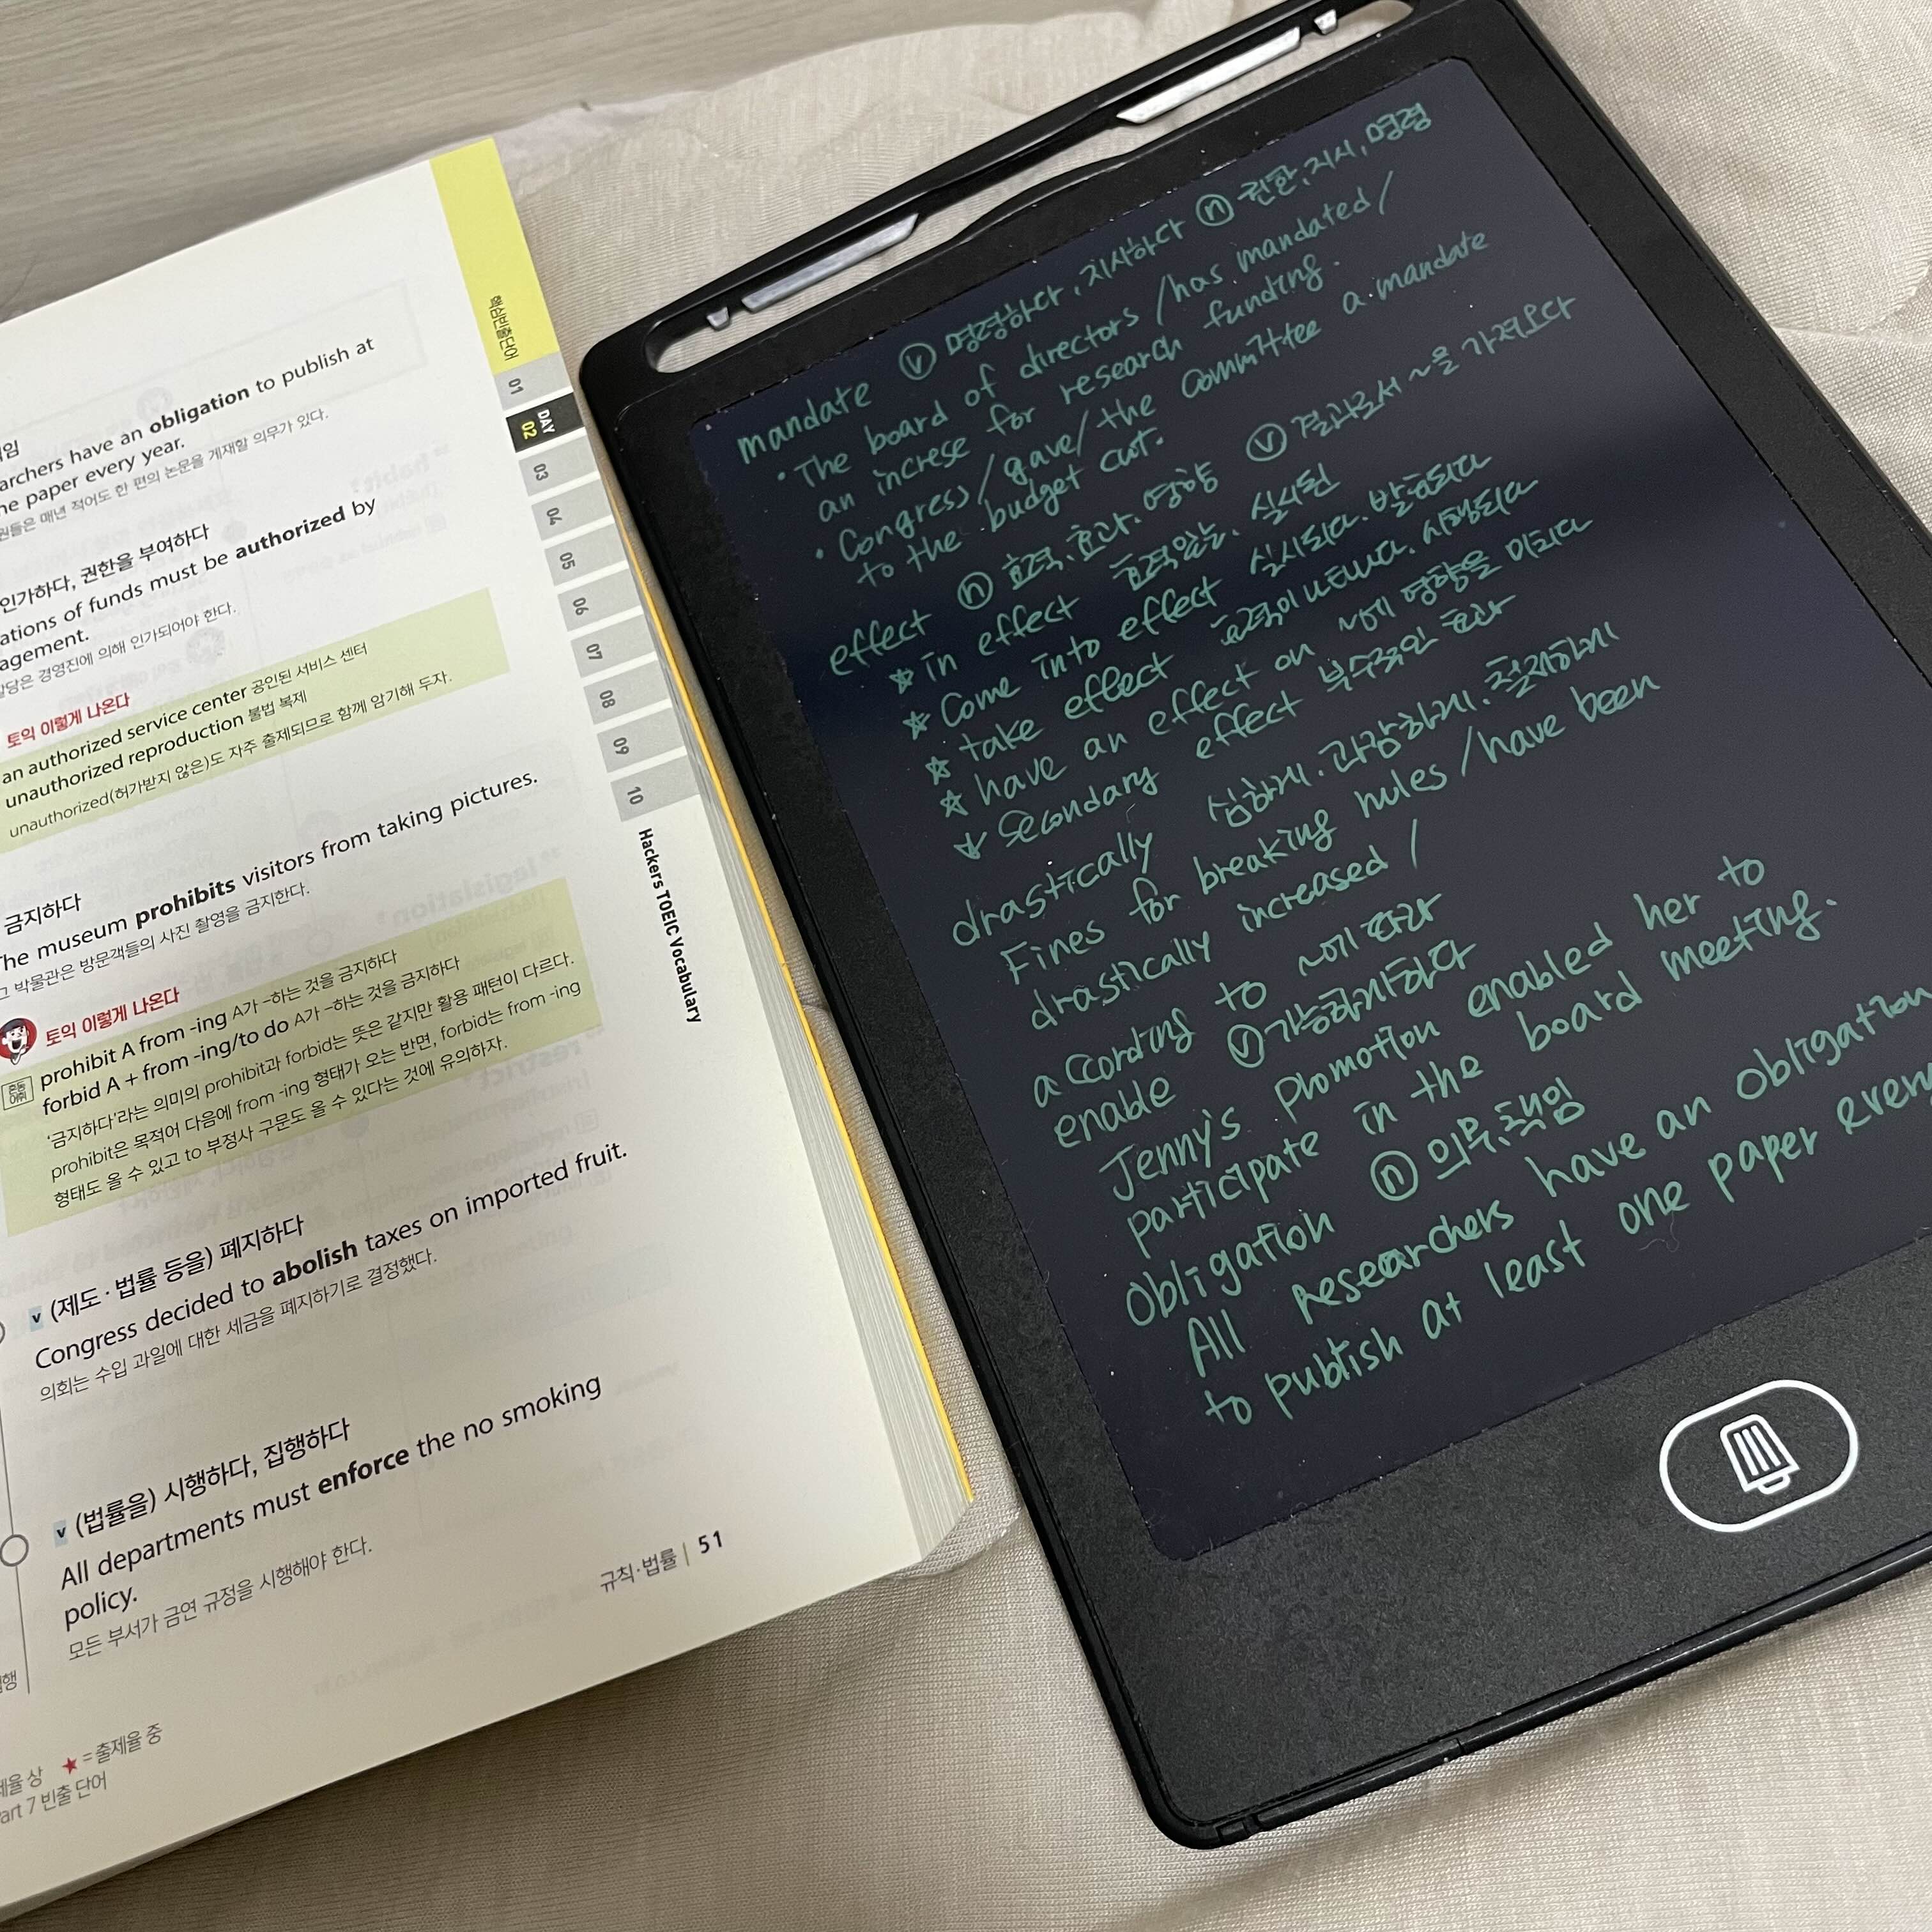 임
archers have an obligation to publish at
ne paper every year.
원들은 매년 적어도 한 편의 논문을 게재할 의무가 있다.
인가하다, 권한을 부여하다
ations of funds must be authorized by
agement.
당은 경영진에 의해 인가되어야 한다.
토익 이렇게 나온다
an authorized service center 공인된 서비스 센터
unauthorized reproduction 불법 복제
unauthorized(허가받지 않은)도 자주 출제되므로 함께 암기해 두자.
금지하다
The museum prohibits visitors from taking pictures.
그 박물관은 방문객들의 사진 촬영을 금지한다.
토익 이렇게 나온다
혼동어휘
prohibit A from -ing A가 -하는 것을 금지하다
forbid A + from -ing/to do A가 -하는 것을 금지하다
'금지하다'라는 의미의 prohibit과 forbid는 뜻은 같지만 활용 패턴이 다르다.
prohibit은 목적어 다음에 from -ing 형태가 오는 반면, forbid는 from -ing
형태도 올 수 있고 to 부정사 구문도 올 수 있다는 것에 유의하자.
v (제도·법률 등을) 폐지하다
Congress decided to abolish taxes on imported fruit.
의회는 수입 과일에 대한 세금을 폐지하기로 결정했다.
v (법률을) 시행하다, 집행하다
All departments must enforce the no smoking
policy.
모든 부서가 금연 규정을 시행해야 한다.
행
제율 상 ★ = 출제율 중
art 7 빈출 단어
규칙·법률 | 51
핵심빈출단어
01
DAY 02
03
04
05
06
07
08
09
10
Hackers TOEIC Vocabulary
mandate ⓥ 명령하다, 지시하다 ⓝ 권한, 지시, 명령
• The board of directors /has mandated/
an increse for research funding.
• Congress/gave/the committee a mandate
to the budget cut.
effect ⓝ 효력, 효과, 영향 ⓥ 결과로서 ~을 가져오다
☆ in effect 효력있는, 실시된
☆ Come into effect 실시되다, 발효되다
☆ take effect 효력이 나타나다, 시행되다
☆ have an effect on ~에 영향을 미치다
↓ Secondary effect 부수적인 효과
drastically 심하게, 과감하게, 철저하게
Fines for breaking rules /have been
drastically increased /
according to ~에 따라
enable ⓥ 가능하게하다
Jenny's promotion enabled her to
participate in the board meeting.
Obligation ⓝ 의무, 책임
All researchers have an obligation
to publish at least one paper every